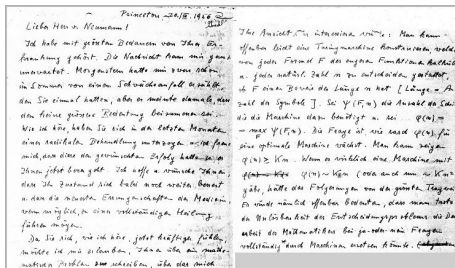 Princeton 20./III. 1956
Lieber Herr v. Neumann!
Ich habe mit grösstem Bedauern von Ihrer Er-
krankung gehört. Die Nachricht kam mir ganz
unerwartet. Morgenstern hatte mir zwar schon
im Sommer von einem Schwächeanfall erzählt
den Sie einmal hatten, aber er meinte damals dass
dem keine grössere Bedeutung beizumessen sei.
Wie ich höre, haben Sie sich in den letzten Monaten
einer radikalen Behandlung unterzogen u. ich freue
mich, dass diese den gewünschten Erfolg hatte u. es
Ihnen jetzt besser geht. Ich hoffe u. wünsche Ihnen
dass Ihr Zustand sich bald noch weiter bessert
u. dass die neuesten Errungenschaften der Medizin,
wenn möglich, zu einer vollständigen Heilung
führen mögen.
Da Sie sich, wie ich höre, jetzt kräftiger fühlen
möchte ich mir erlauben, Ihnen über ein mathe-
matisches Problem zu schreiben, über das mich
Ihre Ansicht sehr interessieren würde: Man kann
offenbar leicht eine Turingmaschine konstruieren, welche
von jeder Formel F des engeren Funktionenkalküls
u. jeder natürl. Zahl n zu entscheiden gestattet
ob F einen Beweis der Länge n hat [Länge = An-
zahl der Symbole]. Sei Ψ(F,n) die Anzahl der Schritte
die die Maschine dazu benötigt u. sei φ(n) =
= max Ψ(F,n). Die Frage ist, wie rasch φ(n) für
eine optimale Maschine wächst. Man kann zeigen
φ(n) ≥ Kn. Wenn es wirklich eine Maschine mit
φ(n) ∼ Kn (oder auch nur ∼ Kn²)
gäbe, hätte das Folgerungen von der grössten Tragweite.
Es würde nämlich offenbar bedeuten, dass man trotz
der Unlösbarkeit des Entscheidungsproblems die Denk-
arbeit des Mathematikers bei ja-oder-nein Fragen
vollständig durch Maschinen ersetzen könnte.